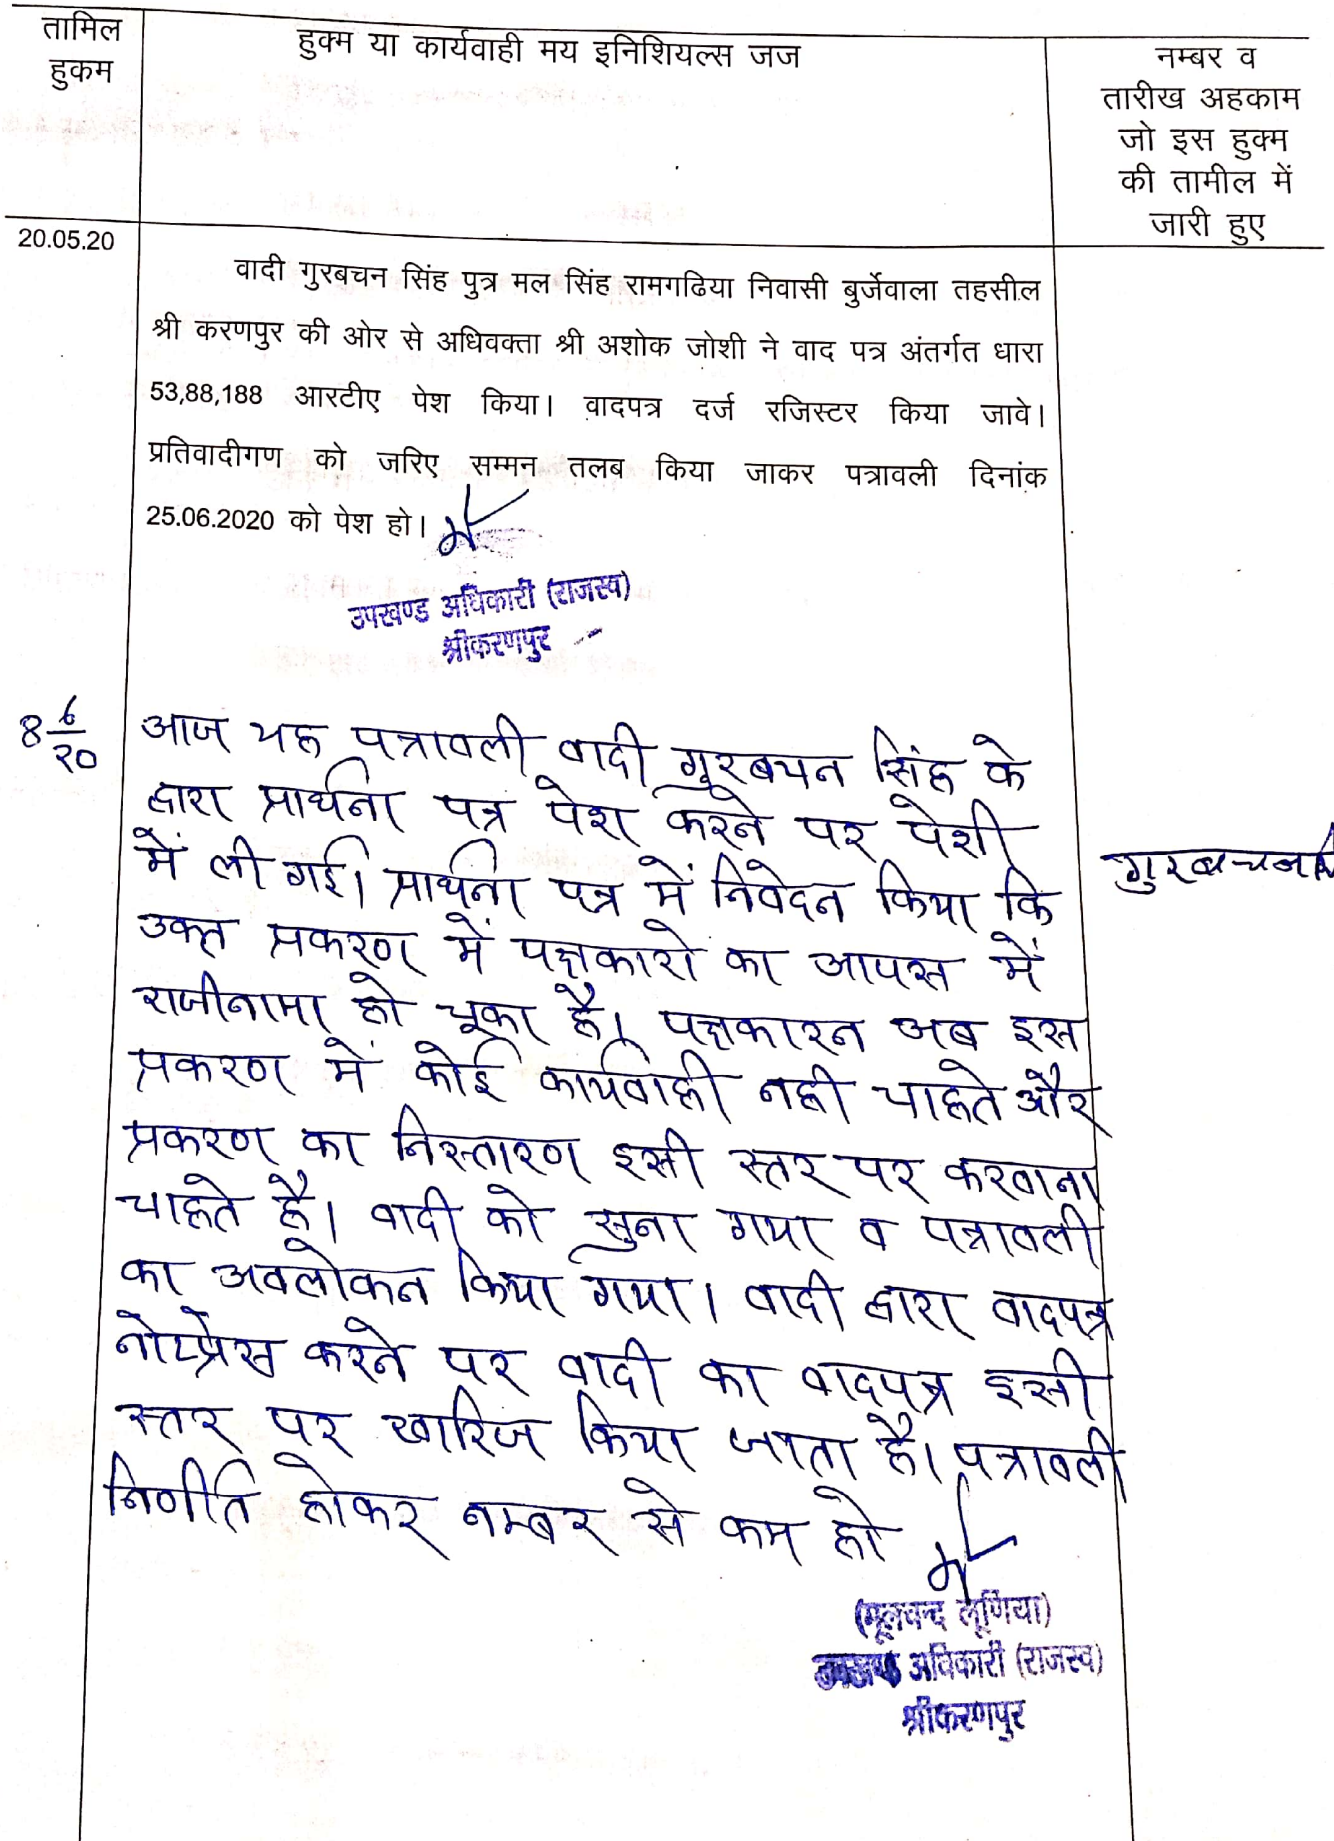 तामिल
हुकम
हुक्म या कार्यवाही मय इनिशियल्स जज
नम्बर व
तारीख अहकाम
जो इस हुक्म
की तामील में
जारी हुए
20.05.20
वादी गुरबचन सिंह पुत्र मल सिंह रामगढिया निवासी बुर्जेवाला तहसील
श्री करणपुर की ओर से अधिवक्ता श्री अशोक जोशी ने वाद पत्र अंतर्गत धारा
53,88,188 आरटीए पेश किया। वादपत्र दर्ज रजिस्टर किया जावे।
प्रतिवादीगण को जरिए सम्मन तलब किया जाकर पत्रावली दिनांक
25.06.2020 को पेश हो।
उपखण्ड अधिकारी (राजस्व)
श्रीकरणपुर
8 6/20
आज यह पत्रावली वादी गुरबचन सिंह के
द्वारा प्रार्थना पत्र पेश करने पर पेशी
में ली गई। प्रार्थना पत्र में निवेदन किया कि
उक्त प्रकरण में पक्षकारो का आपस में
राजीनामा हो चूका है। पक्षकारन अब इस
प्रकरण में कोई कार्यवाही नही चाहते और
प्रकरण का निस्तारण इसी स्तर पर करवाना
चाहते है। वादी को सुना गया व पत्रावली
का अवलोकन किया गया। वादी द्वारा वादपत्र
नोटप्रेस करने पर वादी का वादपत्र इसी
स्तर पर खारिज किया जाता है। पत्रावली
निर्णीत होकर नम्बर से कम हो
गुरबचन
(मूलचन्द लूणिया)
उपखण्ड अधिकारी (राजस्व)
श्रीकरणपुर